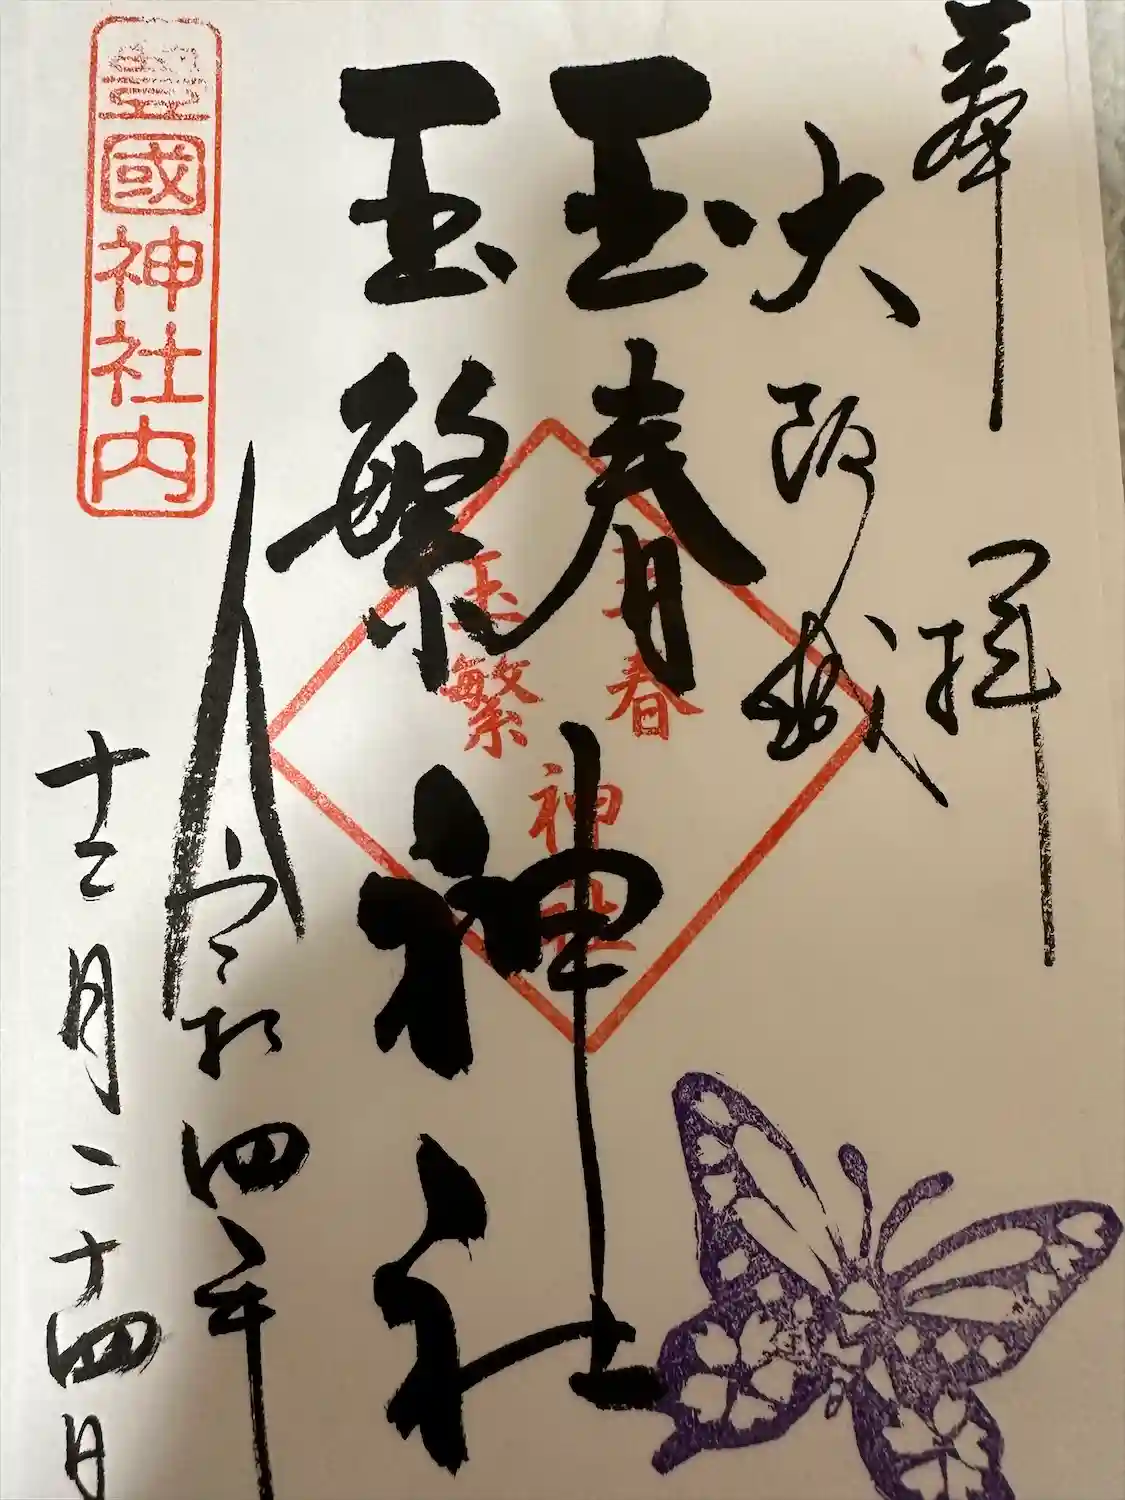 奉拝
大阪城
玉春
玉繁
神社
玉春
玉繁
神社
令和四年
十二月二十四日
豊國神社内